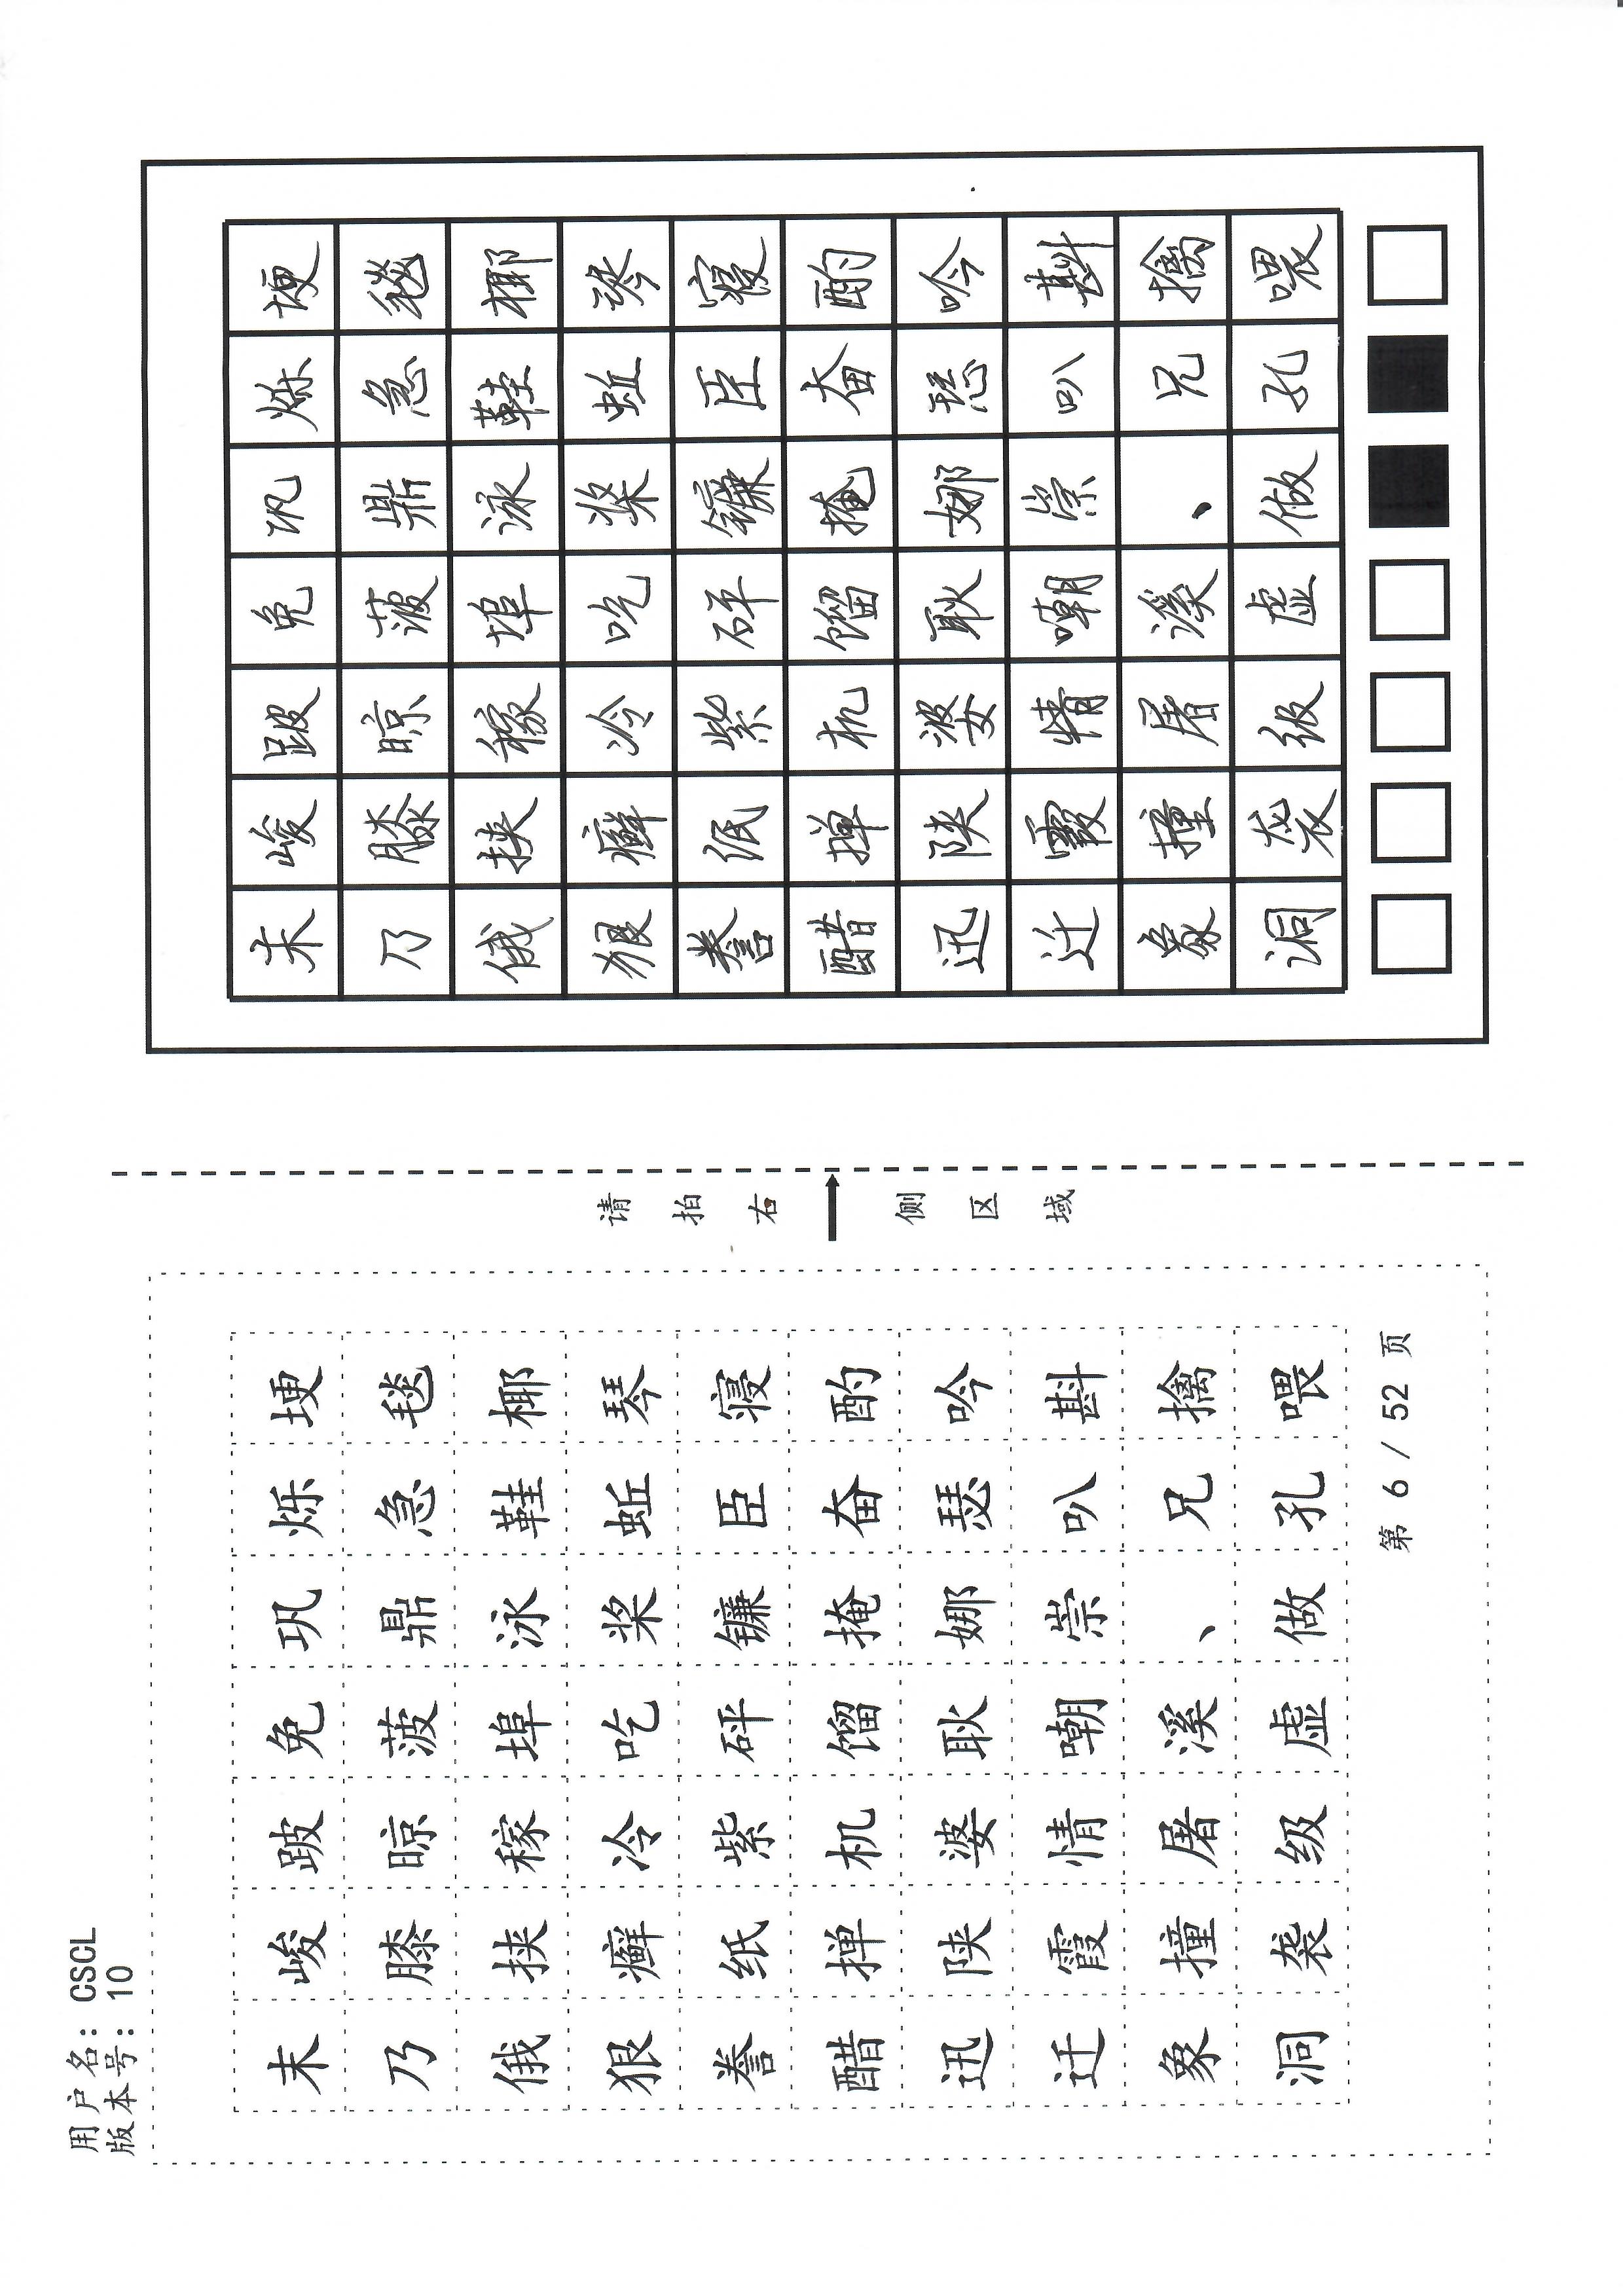 用户名: CSCL
版本号: 10
末峻跛免巩烁埂
乃膝晾菠鼎急毯
俄挟稼埠泳鞋椰
狠癣冷吃桨蚯琴
誊纸紫砰镰臣寝
醋掸机馏掩奋酌
迅陕婆耿娜瑟吟
迁霞情嘲崇叭斟
象撞屠溪、兄擒
洞袭级虚做孔喂
第 6 / 52 页
请拍右侧区域
末峻跛免巩烁埂
乃膝晾菠鼎急毯
俄挟稼埠泳鞋椰
狠癣冷吃桨蚯琴
誊纸紫砰镰臣寝
醋掸机馏掩奋酌
迅陕婆耿娜瑟吟
迁霞情嘲崇叭斟
象撞屠溪、兄擒
洞袭级虚做孔喂